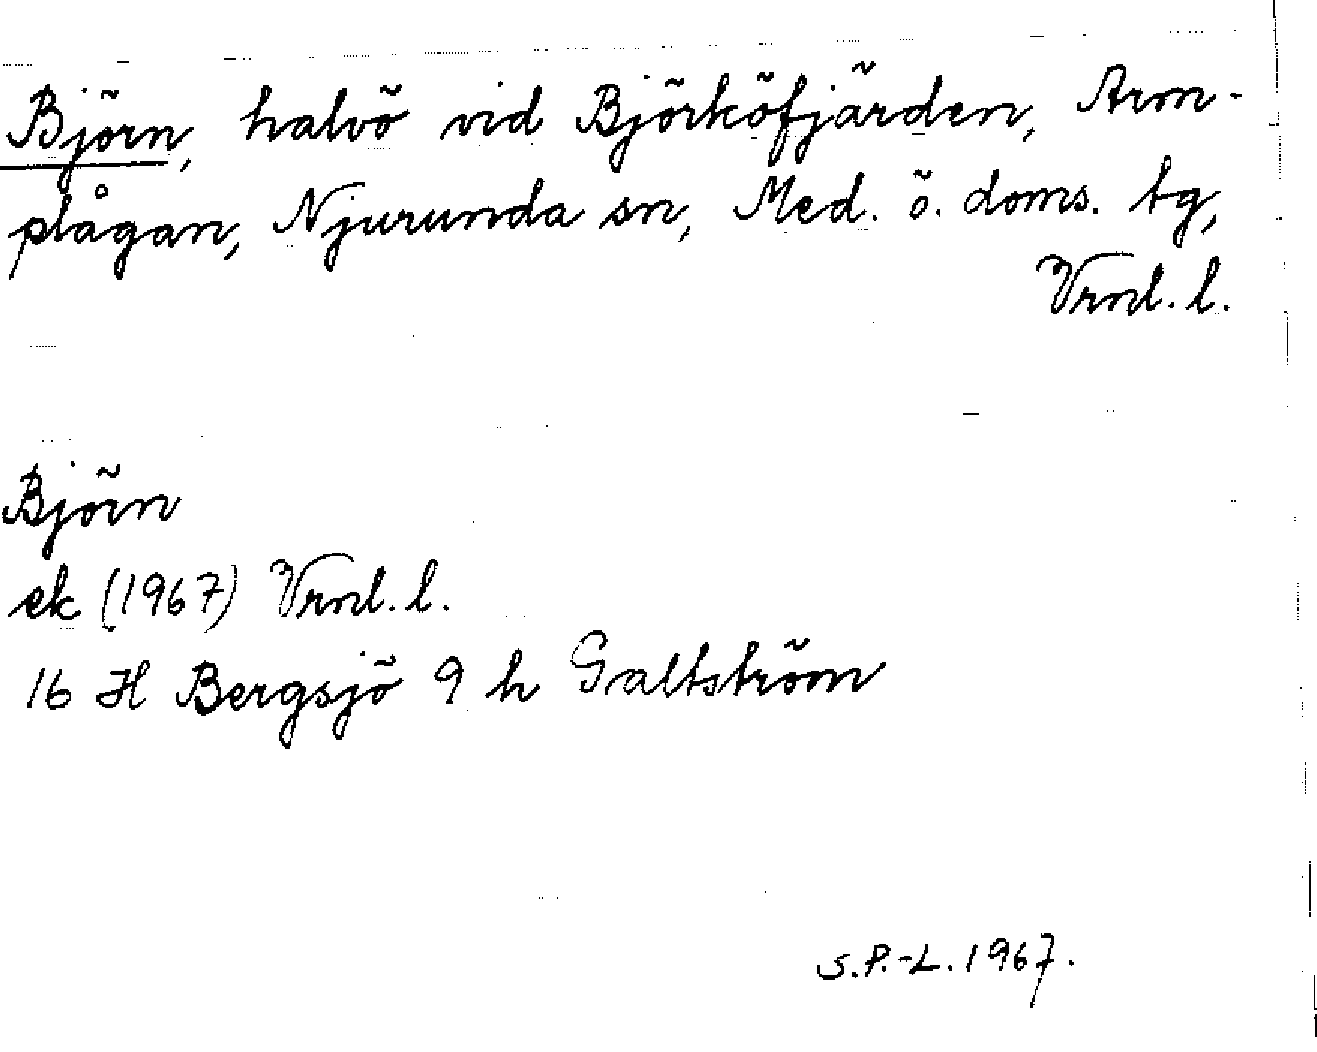 Björn, halvö vid Björköfjärden, Arm-
plågan, Njurunda sn, Med. ö. doms. tg,
Vrnl. l.
Björn
ek (1967) Vrnl. l.
16 H Bergsjö 9 h Galtström
S.P.-L. 1967.